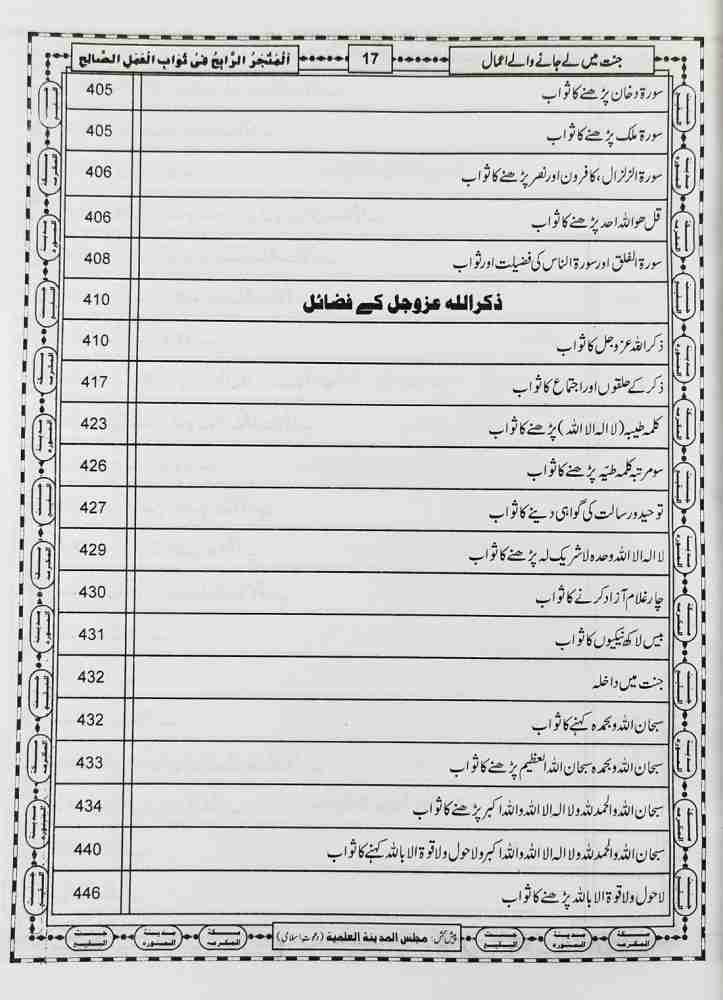 جنت میں لے جانے والے اعمال 17 اَلْمَتْجَرُ الرَّابِحُ فِیْ ثَوَابِ الْعَمَلِ الصَّالِحِ
سورۃ دخان پڑھنے کا ثواب 405
سورۃ ملک پڑھنے کا ثواب 405
سورۃ الزلزال، کافرون اور نصر پڑھنے کا ثواب 406
قل ھو اللہ احد پڑھنے کا ثواب 406
سورۃ الفلق اور سورۃ الناس کی فضیلت اور ثواب 408
ذکر اللہ عزوجل کے فضائل 410
ذکر اللہ عزوجل کا ثواب 410
ذکر کے حلقوں اور اجتماع کا ثواب 417
کلمہ طیبہ (لا الہ الا اللہ) پڑھنے کا ثواب 423
سو مرتبہ کلمہ طیبہ پڑھنے کا ثواب 426
توحید و رسالت کی گواہی دینے کا ثواب 427
لا الہ الا اللہ وحدہ لا شریک لہ پڑھنے کا ثواب 429
چار غلام آزاد کرنے کا ثواب 430
بیس لاکھ نیکیوں کا ثواب 431
جنت میں داخلہ 432
سبحان اللہ وبحمدہ کہنے کا ثواب 432
سبحان اللہ وبحمدہ سبحان اللہ العظیم پڑھنے کا ثواب 433
سبحان اللہ والحمد للہ ولا الہ الا اللہ واللہ اکبر پڑھنے کا ثواب 434
سبحان اللہ والحمد للہ ولا الہ الا اللہ واللہ اکبر ولا حول ولا قوۃ الا باللہ کہنے کا ثواب 440
لا حول ولا قوۃ الا باللہ پڑھنے کا ثواب 446
پیش کش: مجلس المدینۃ العلمیۃ (دعوت اسلامی)